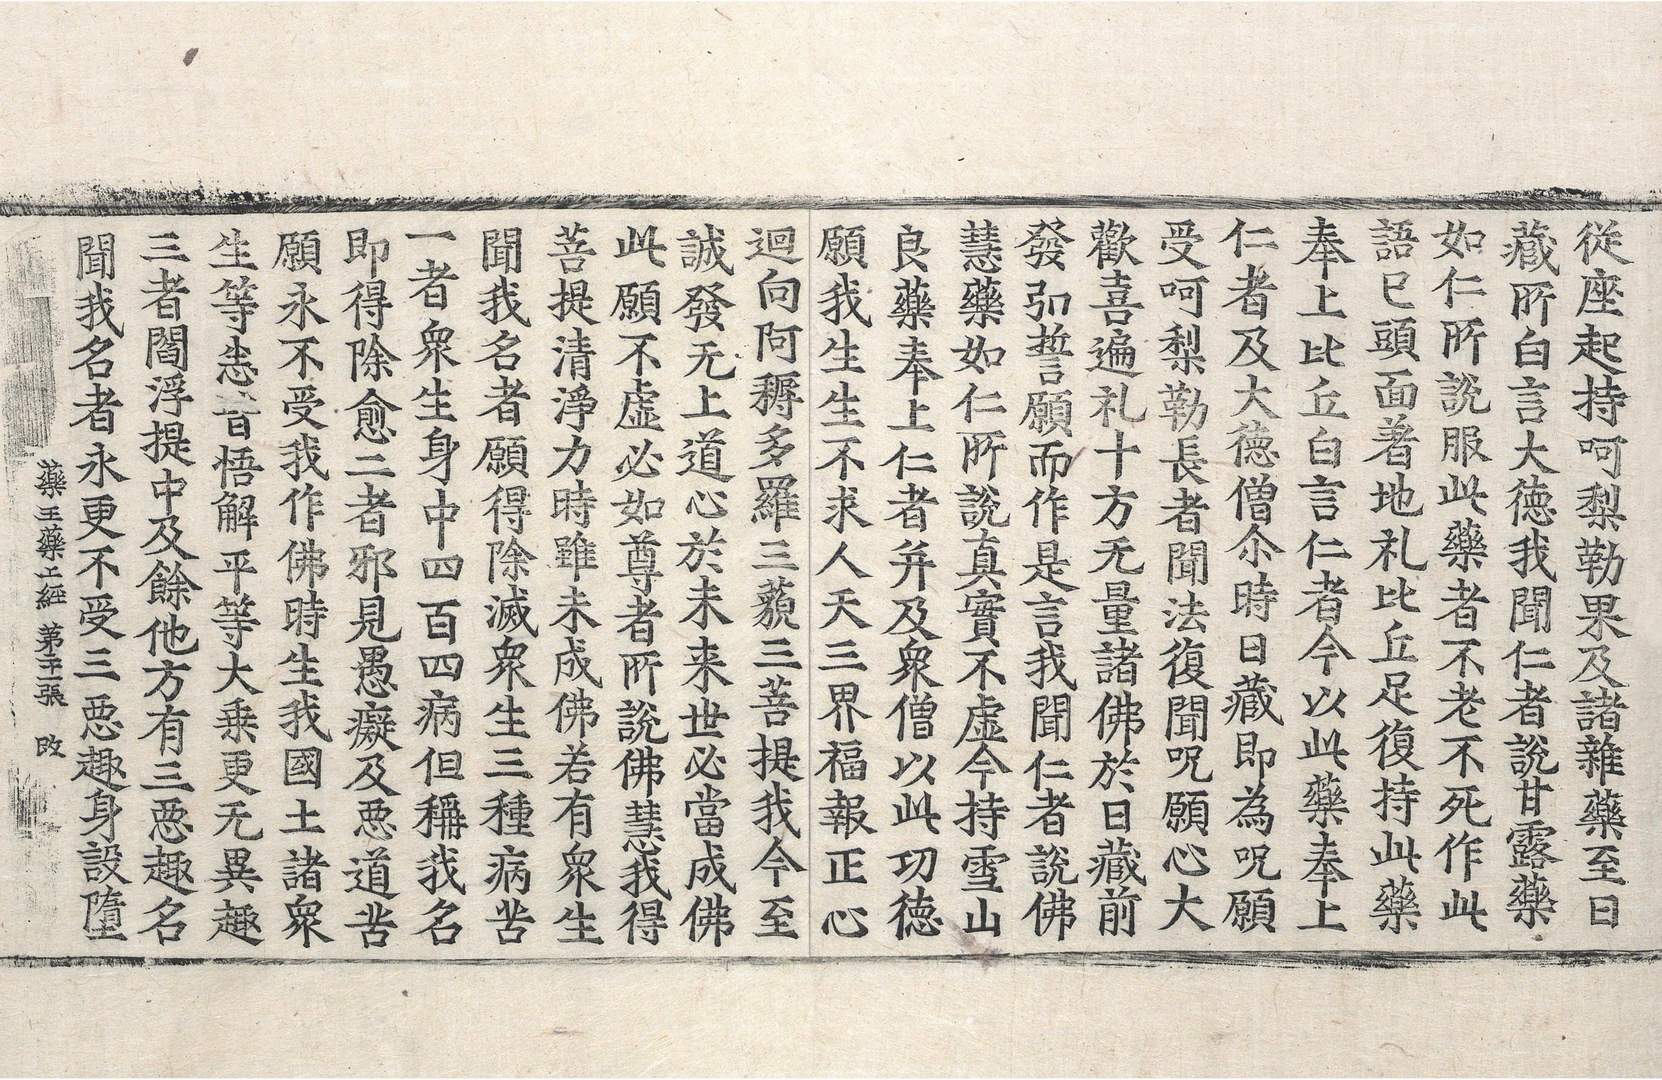 從座起持呵梨勒果及諸雜藥至日
藏所白言大德我聞仁者說甘露藥
如仁所說服此藥者不老不死作此
語已頭面著地礼比丘足復持此藥
奉上比丘白言仁者今以此藥奉上
仁者及大德僧尒時日藏即為呪願
受呵梨勒長者聞法復聞呪願心大
歡喜遍礼十方无量諸佛於日藏前
發弘誓願而作是言我聞仁者說佛
慧藥如仁所說真實不虛今持雪山
良藥奉上仁者并及衆僧以此功德
願我生生不求人天三界福報正心
迴向阿耨多羅三藐三菩提我今至
誠發无上道心於未来世必當成佛
此願不虛必如尊者所說佛慧我得
菩提清淨力時雖未成佛若有衆生
聞我名者願得除滅衆生三種病苦
一者衆生身中四百四病但稱我名
即得除愈二者邪見愚癡及惡道苦
願永不受我作佛時生我國土諸衆
生等悉皆悟解平等大乘更无異趣
三者閻浮提中及餘他方有三惡趣名
聞我名者永更不受三惡趣身設墮
藥王藥上經 第 張